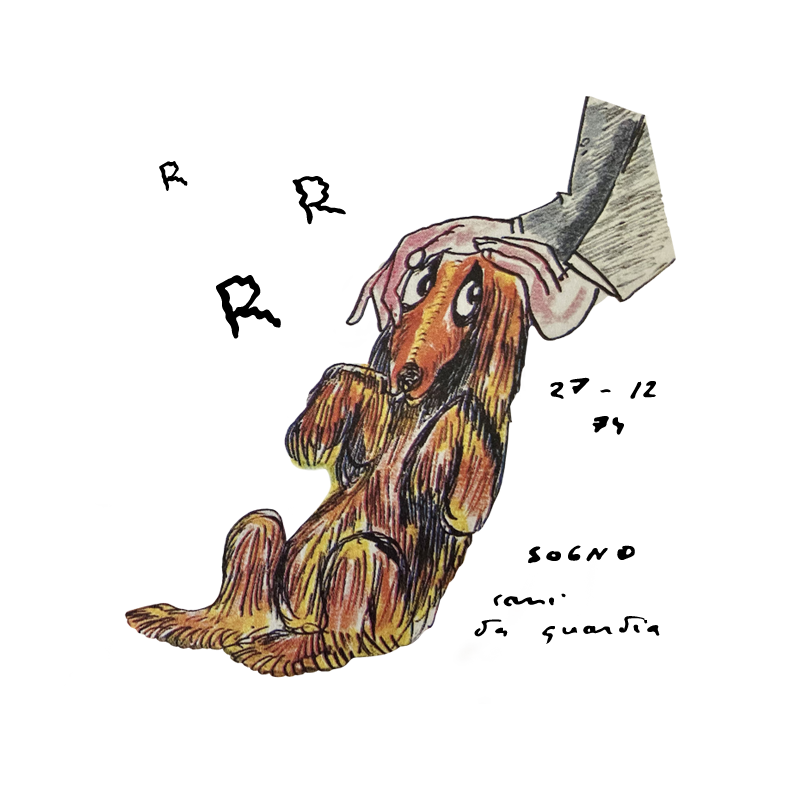 R
R
R
27 - 12
74
SOGNO
cani
da guardia